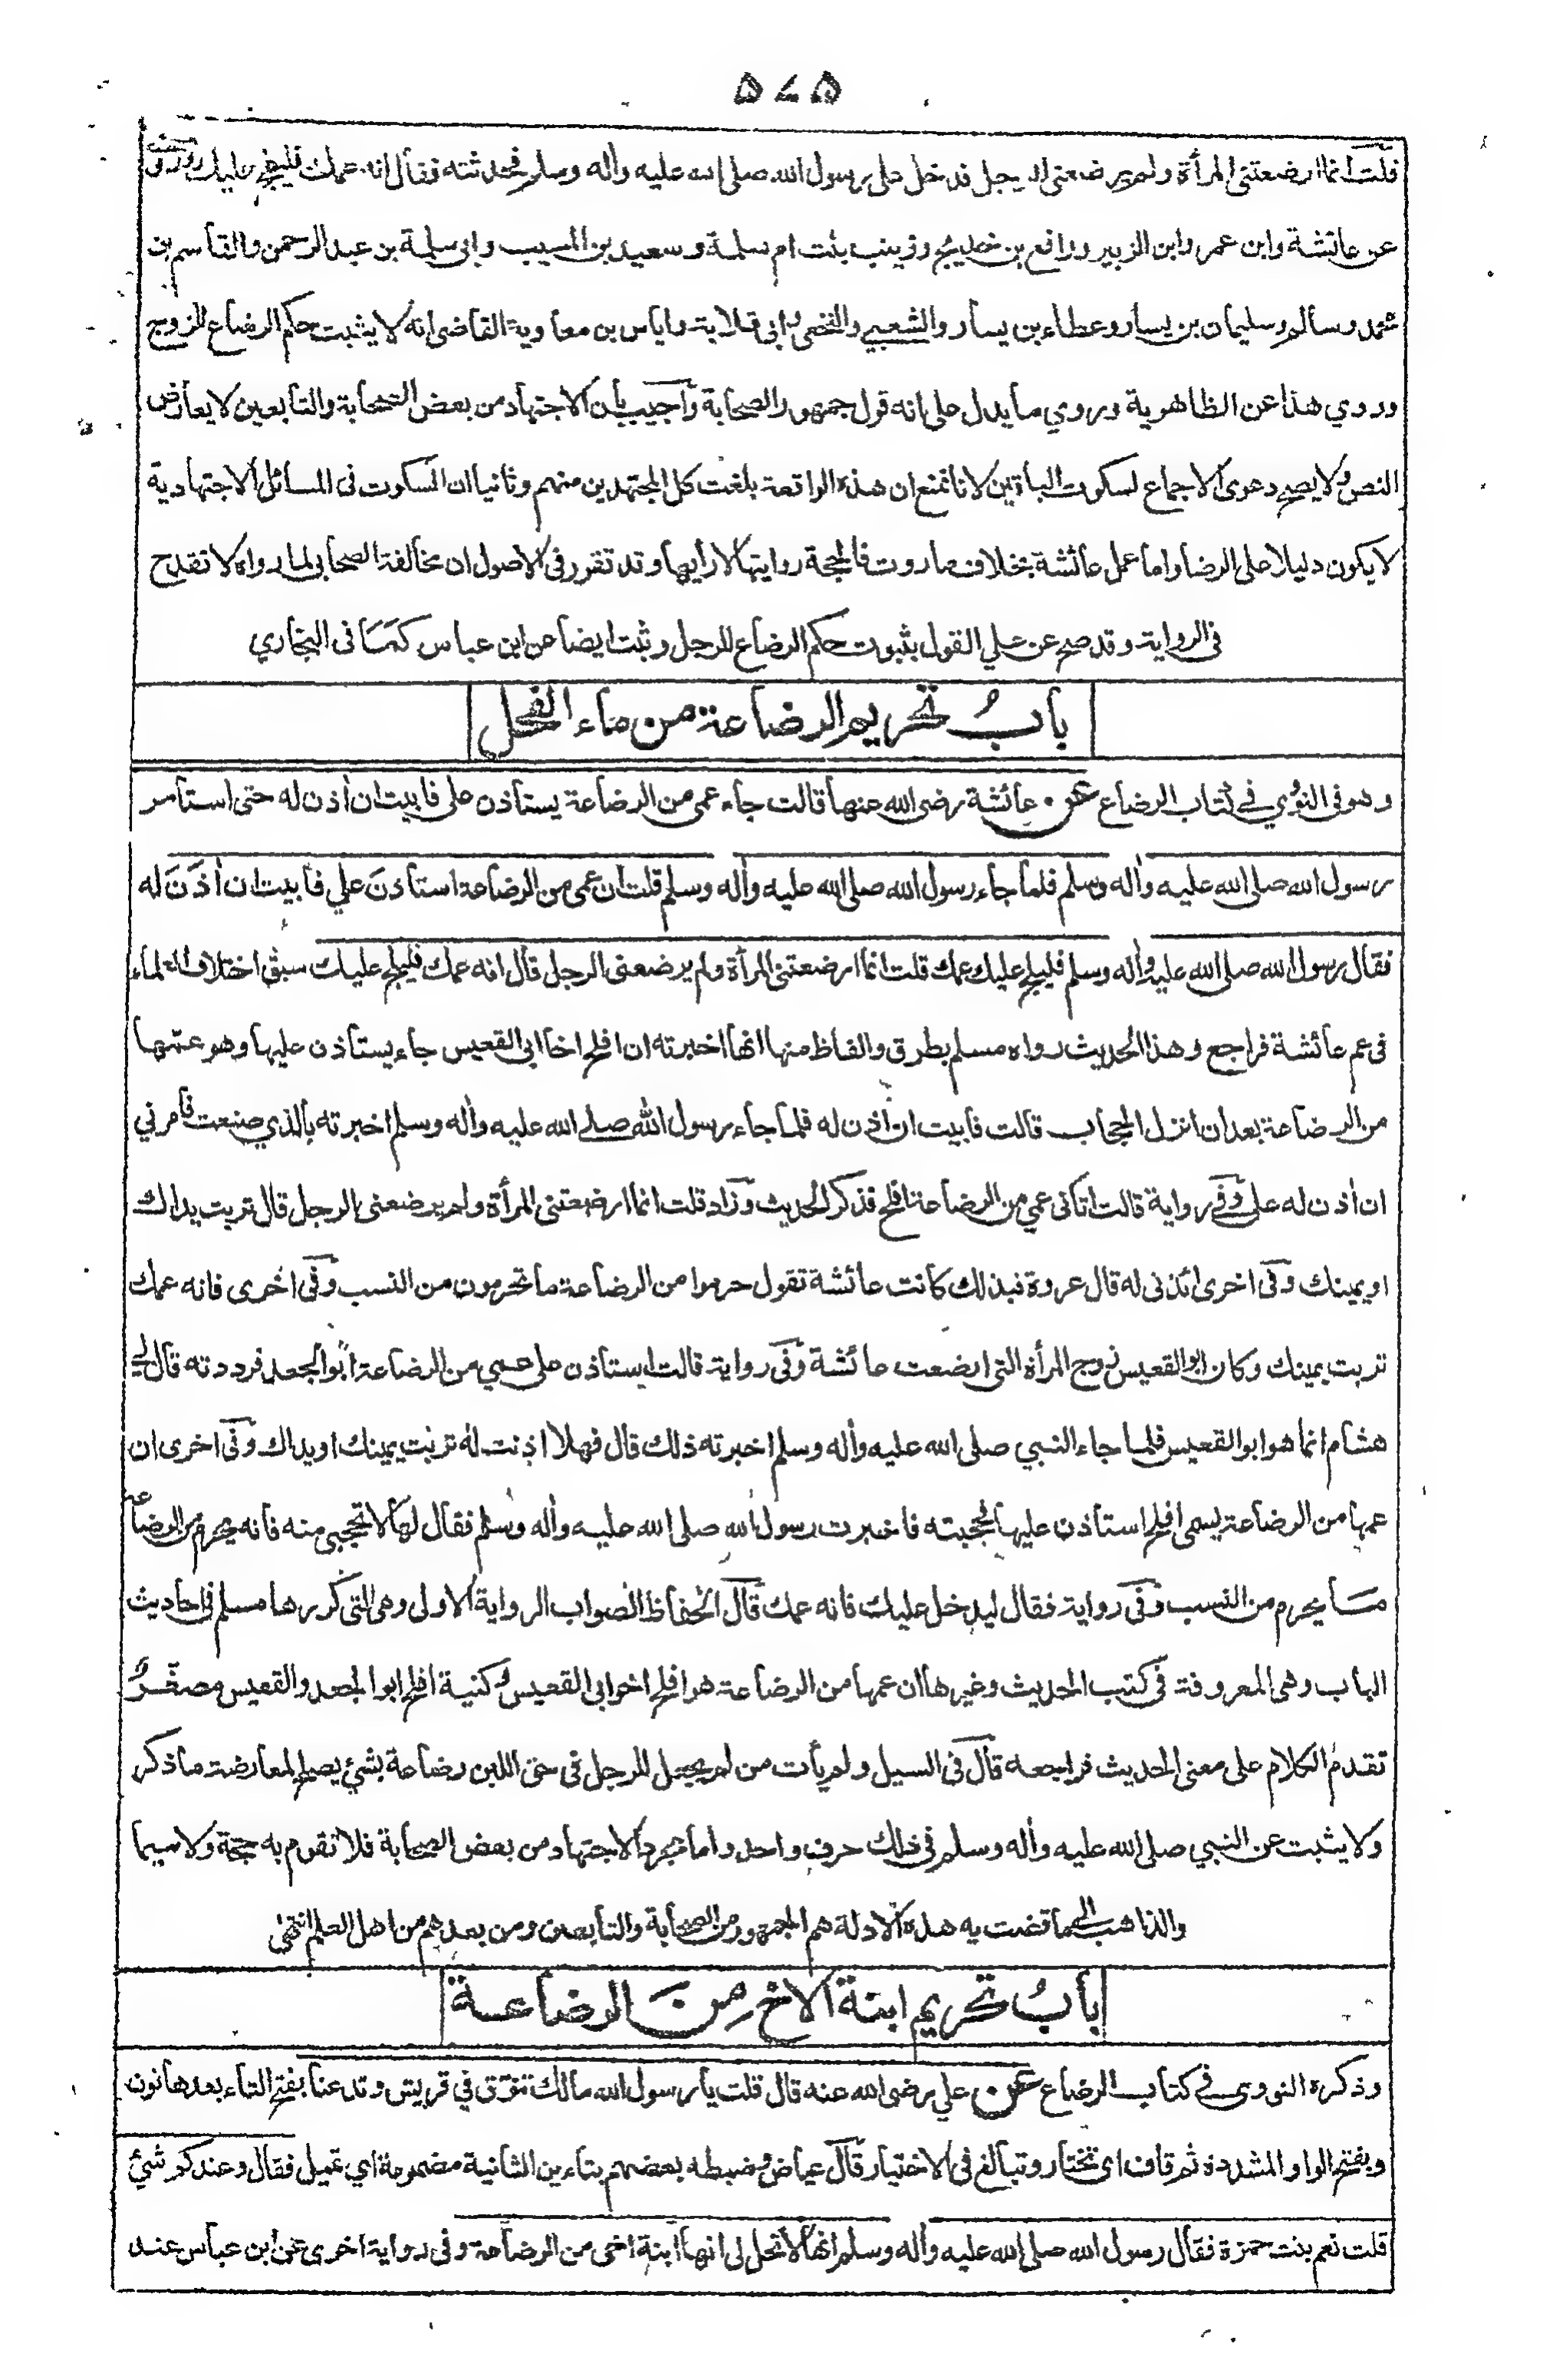 ۵۷۵
قلت انما ارضعتنى المرأة ولم يرضعنى الرجل فدخل على رسول الله صلى الله عليه واٰله وسلم فحدثته فقال انه عمك فليلج عليك وروي
عن عائشة وابن عمر وابن الزبير ورافع بن خديج وزينب بنت ام سلمة وسعيد بن المسيب وابى سلمة بن عبد الرحمن والقاسم بن
محمد وسالم وسليمان بن يسار وعطاء بن يسار والشعبي والنخعى وابى قلابة واياس بن معاوية القاضى انه لا يثبت حكم الرضاع للزوج
وروي هذا عن الظاهرية وروي ما يدل على انه قول جمهور الصحابة وأجيب بأن الاجتهاد من بعض الصحابة والتابعين لا يعارض
النص ولا يصح دعوى الاجماع لسكوت الباقين لانا نمنع ان هذه الواقعة بلغت كل المجتهدين منهم وثانيا ان السكوت فى المسائل الاجتهادية
لا يكون دليلا على الرضا واما عمل عائشة بخلاف ما روت فالحجة روايتها لا رأيها وقد تقرر فى الاصول ان مخالفة الصحابى لما رواه لا تقدح
فى الرواية وقد صح عن علي القول بثبوت حكم الرضاع للرجل وثبت ايضا عن ابن عباس كما فى البخاري
بابُ تحريم الرضاعة من ماء الفحل
وهو فى النووي في كتاب الرضاع عن عائشة رضى الله عنها قالت جاء عمى من الرضاعة يستاذن على فابيت ان اٰذن له حتى استامر
رسول الله صلى الله عليه واٰله وسلم فلما جاء رسول الله صلى الله عليه واٰله وسلم قلت ان عمى من الرضاعة استاذنَ علي فأبيت ان اٰذَنَ له
فقال رسول الله صلى الله عليه واٰله وسلم فليلج عليك عمك قلت انما ارضعتنى المرأة ولم يرضعنى الرجل قال انه عمك فليلج عليك سبق اختلاف العلماء
فى عم عائشة فراجع وهذا الحديث رواه مسلم بطرق والفاظ منها انها اخبرته ان افلح اخا ابى القعيس جاء يستاذن عليها وهو عمها
من الرضاعة بعد ان انزل الحجاب قالت فابيت ان اٰذن له فلما جاء رسول الله صلى الله عليه واٰله وسلم اخبرته بالذي صنعت فامرني
ان اٰذن له على وفي رواية قالت اتانى عمي من الرضاعة افلح فذكر الحديث وزاد قلت انما ارضعتنى المرأة ولم يرضعنى الرجل قال تربت يداك
او يمينك وفى اخرى ائذنى له قال عروة فبذلك كانت عائشة تقول حرموا من الرضاعة ما تحرمون من النسب وفى اخرى فانه عمك
تربت يمينك وكان ابو القعيس زوج المرأة التى ارضعت عائشة وفى رواية قالت استاذن على عمي من الرضاعة ابو الجعد فرددته قال لي
هشام انما هو ابو القعيس فلما جاء النبي صلى الله عليه واٰله وسلم اخبرته ذلك قال فهلا اذنت له تربت يمينك او يداك وفى اخرى ان
عمها من الرضاعة يسمى افلح استاذن عليها فحجبته فاخبرت رسول الله صلى الله عليه واٰله وسلم فقال لها لا تحتجبى منه فانه يحرم من الرضاعة
ما يحرم من النسب وفى رواية فقال ليدخل عليك فانه عمك قال الحفاظ الصواب الرواية الاولى وهى التى كررها مسلم فى احاديث
الباب وهى المعروفة فى كتب الحديث وغيرها ان عمها من الرضاعة هو افلح اخو ابى القعيس وكنية افلح ابو الجعد والقعيس مصغّرٌ
تقدم الكلام على معنى الحديث فراجعه قال فى السيل ولم يأت من لم يجعل للرجل فى حق اللبن رضاعة بشئ يصلح لمعارضة ما ذكر
ولا يثبت عن النبي صلى الله عليه واٰله وسلم فى ذلك حرف واحد واما مجرد الاجتهاد من بعض الصحابة فلا تقوم به حجة ولا سيما
والذاهب الى ما قضت به هذه الادلة هم الجمهور من الصحابة والتابعين ومن بعدهم من اهل العلم انتهى
بابُ تحريم ابنة الاخ مِنَ الرضاعة
وذكره النووى في كتاب الرضاع عن علي رضى الله عنه قال قلت يا رسول الله مالك تنوّق في قريش وتدعنا بفتح التاء بعدها نون
وبفتح الواو المشددة ثم قاف اى تختار وتبالغ فى الاختيار قال عياض وضبطه بعضهم بتاءين الثانية مضمومة اي تميل فقال وعندكم شئ
قلت نعم بنت حمزة فقال رسول الله صلى الله عليه واٰله وسلم انها لا تحل لى انها ابنة اخى من الرضاعة وفى رواية اخرى عن ابن عباس عند